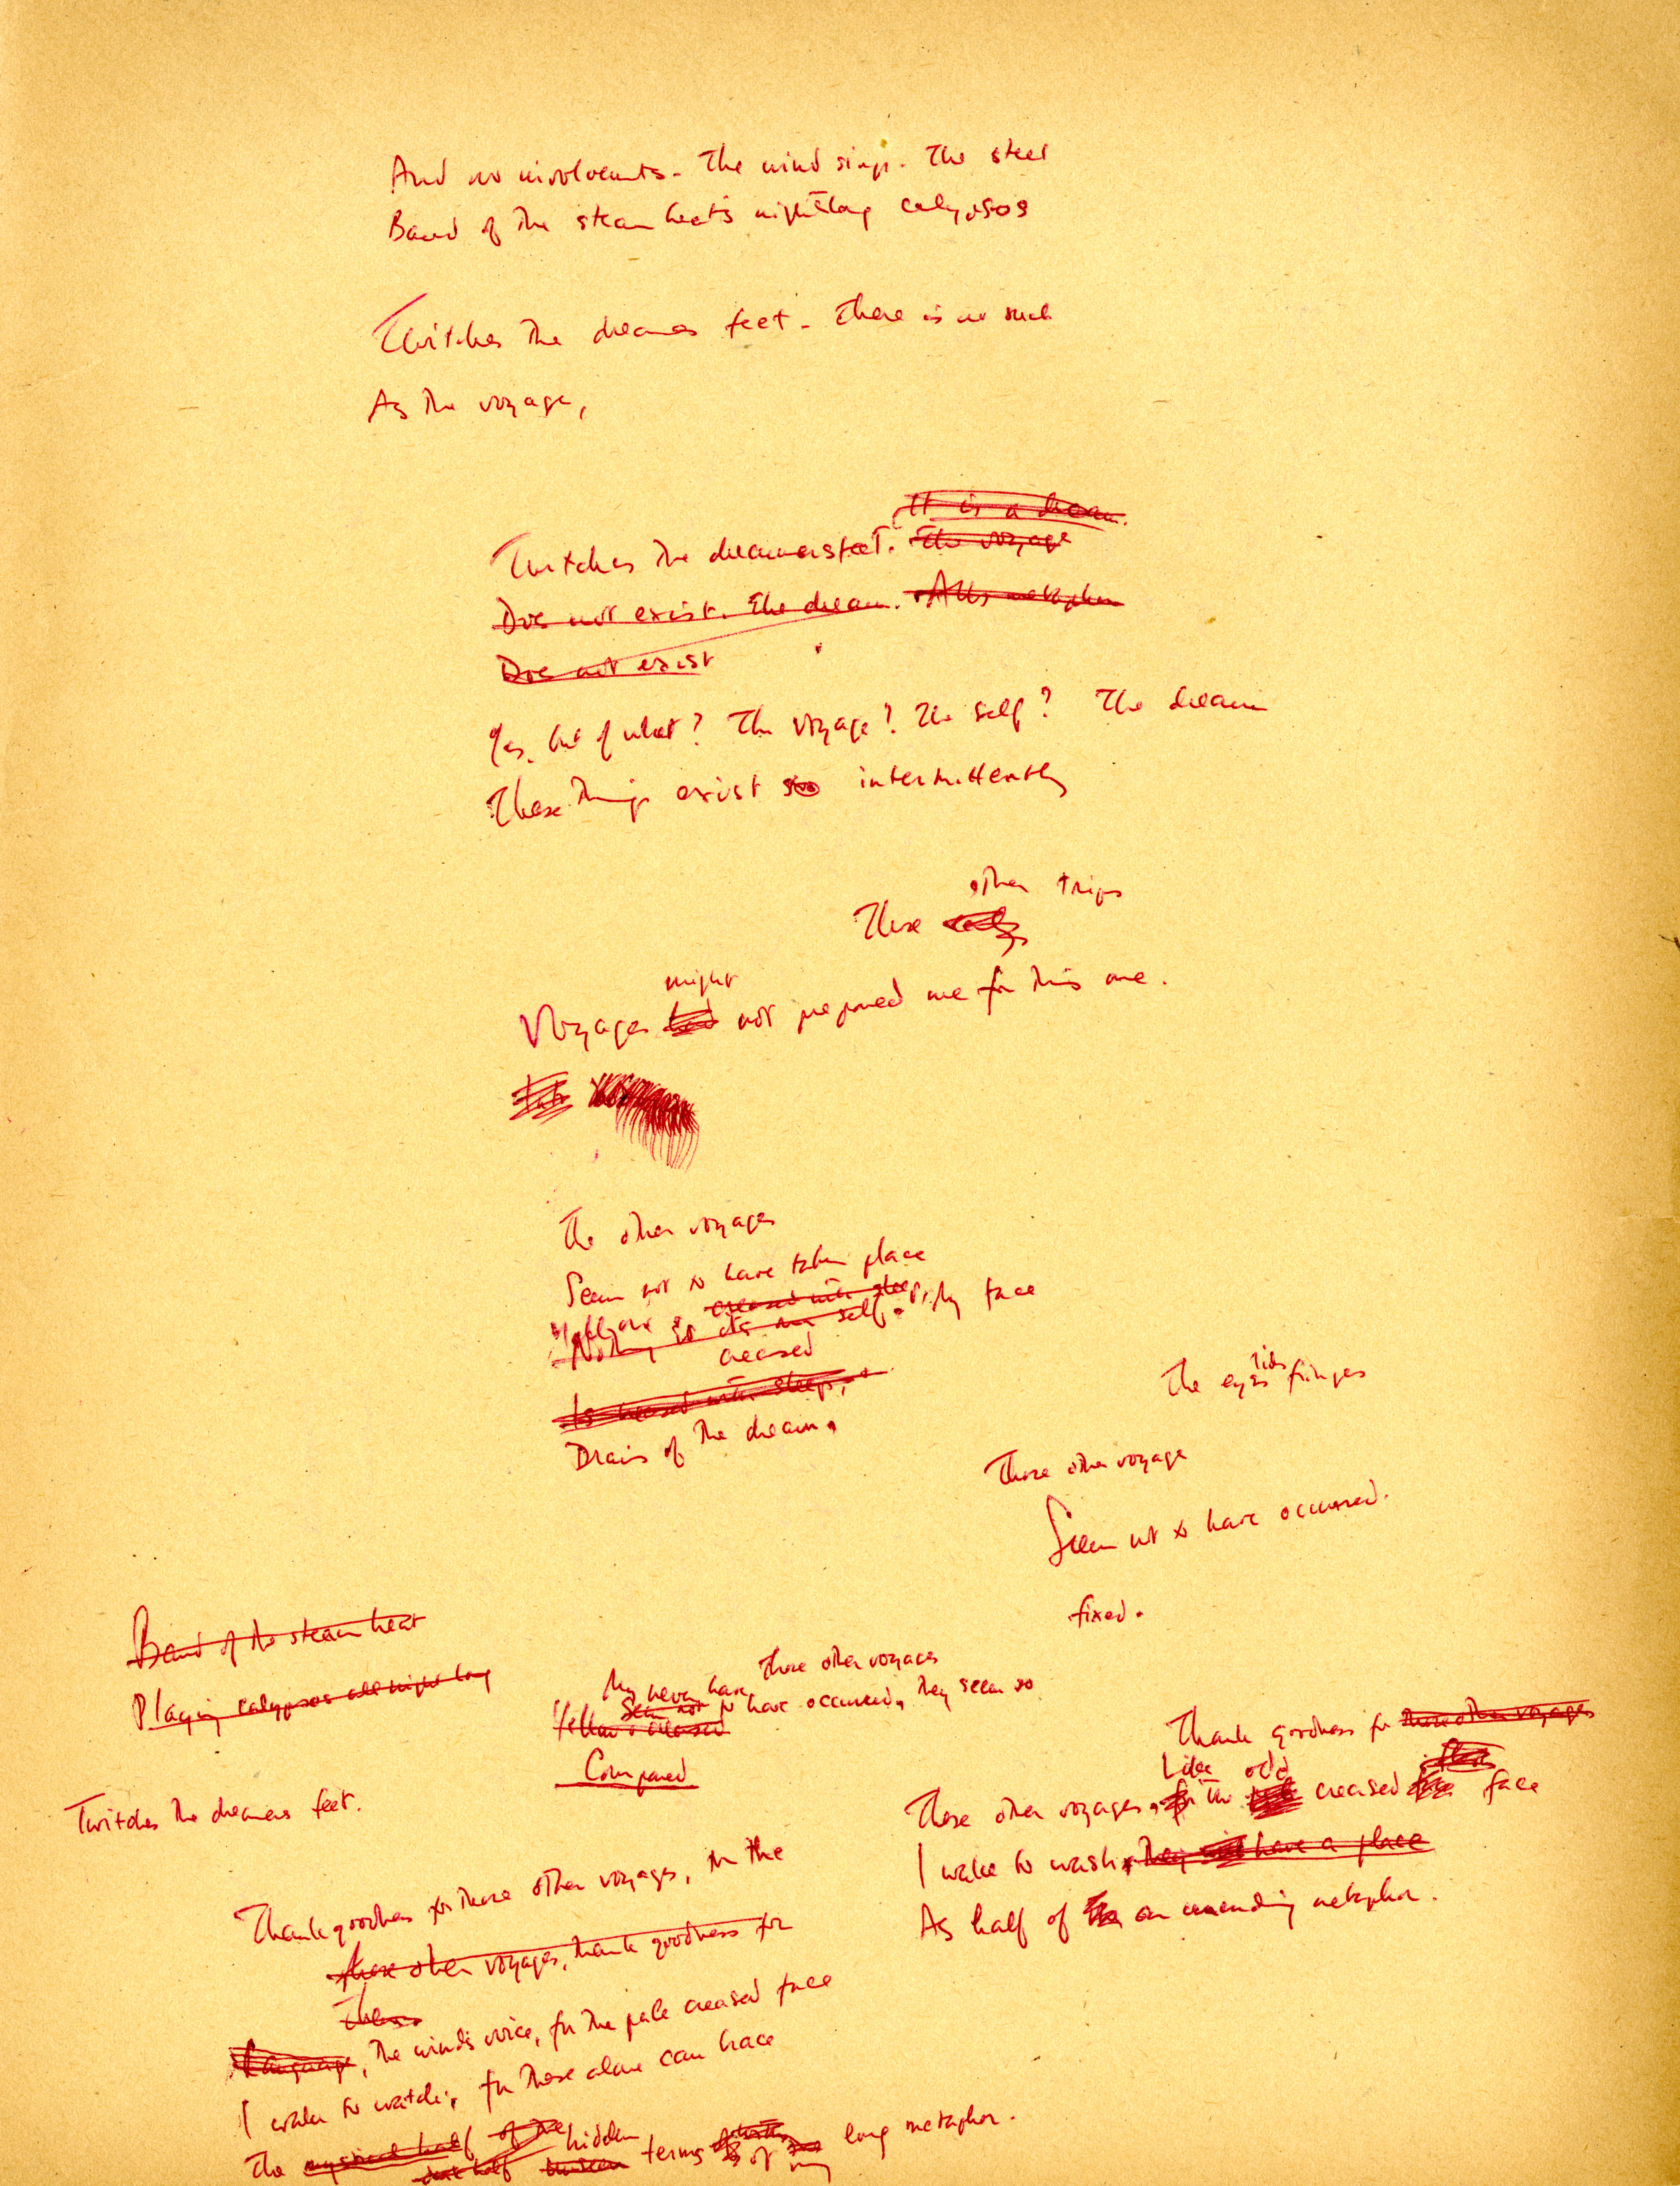 And no involvements. The wind sings. The steel
Band of the steam heat's nightlong calypsos
Twitches the dreamers feet. There is no such
As the voyage,
It is a dream.
Twitches the dreamers feet. The voyage
Does not exist. The dream. All metaphor
Does not exist
Yes, but of what? The voyage? The self? The dream
These things exist intermittently
other trips
These
might
Voyages had not prepared me for this one.
The other voyages
Seem not to have taken place
creased with sleep
Nothing is its own self. My face
creased
Is creased with sleep,
Drains of the dream.
The eyes lids fringes
Those other voyage
Seem not to have occurred.
fixed.
Band of the steam heat
Playing calypsos all night long
Twitches the dreamers feet.
Those other voyages
They never have
Seem not to have occurred, they seem so
Yellow & creased
Compared
Thank goodness for those other voyages
Like odd
These other voyages, for the creased face
I wake to wash, they have a place
As half of an unending metaphor.
Thank goodness for those other voyages, for the
those other voyages, thank goodness for
These
Language, the wind's voice, for the pale creased face
I wake to watch, for these alone can trace
The mystical half of the hidden
dark half unseen terms of my long metaphor.